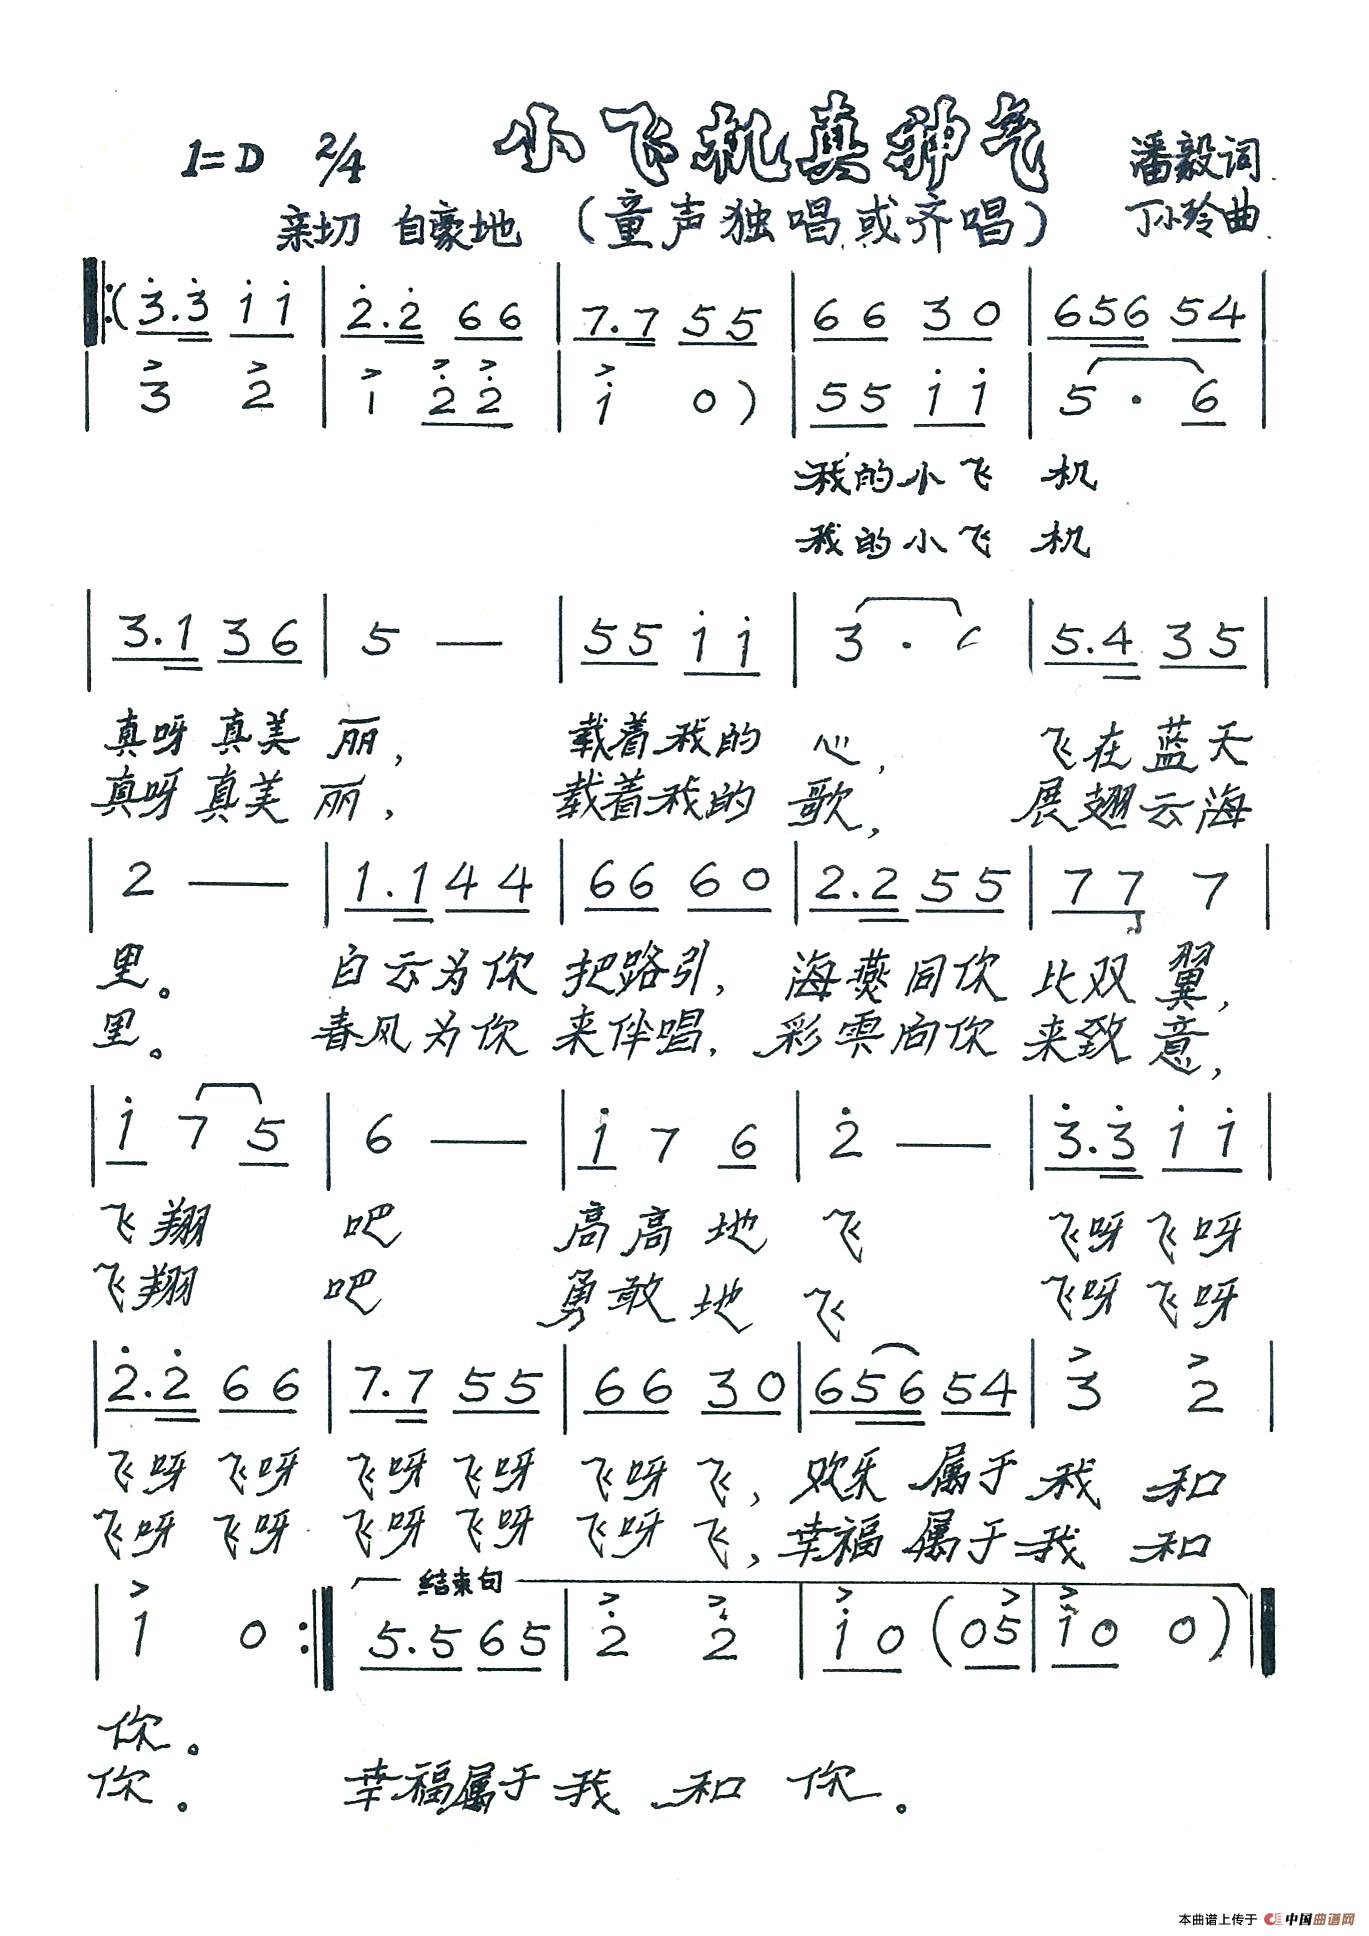 小飞机真神气
1=D 2/4 潘毅词
亲切 自豪地 （童声独唱或齐唱） 丁小玲曲
‖:(3̇.3̇ i i | 2̇.2̇ 6 6 | 7.7 5 5 | 6 6 3 0 | 6 5 6 5 4 |
| 3 2 | 1 2̇ 2̇ | i 0 ) | 5 5 i i | 5 · 6 |
我的小飞机
我的小飞机
| 3.1 3 6 | 5 — | 5 5 i i | 3 · | 5.4 3 5 |
真呀真美丽， 载着我的心， 飞在蓝天
真呀真美丽， 载着我的歌， 展翅云海
| 2 — | 1.1 4 4 | 6 6 6 0 | 2.2 5 5 | 7 7 7 |
里。 白云为你把路引， 海燕同你比双翼，
里。 春风为你来伴唱， 彩雲向你来致意，
| i 7 5 | 6 — | i 7 6 | 2̇ — | 3̇.3̇ i i |
飞翔吧 高高地飞 飞呀飞呀
飞翔吧 勇敢地飞 飞呀飞呀
| 2̇.2̇ 6 6 | 7.7 5 5 | 6 6 3 0 | 6 5 6 5 4 | 3 2 |
飞呀飞呀 飞呀飞呀 飞呀飞， 欢乐属于我和
飞呀飞呀 飞呀飞呀 飞呀飞， 幸福属于我和
| 1 0 :‖ 結束句 5.5 6 5 | 2̇ 2̇ | i 0 ( 0 5 | i 0 0 ) ‖
你。
你。 幸福属于我和你。
本曲谱上传于 中国曲谱网